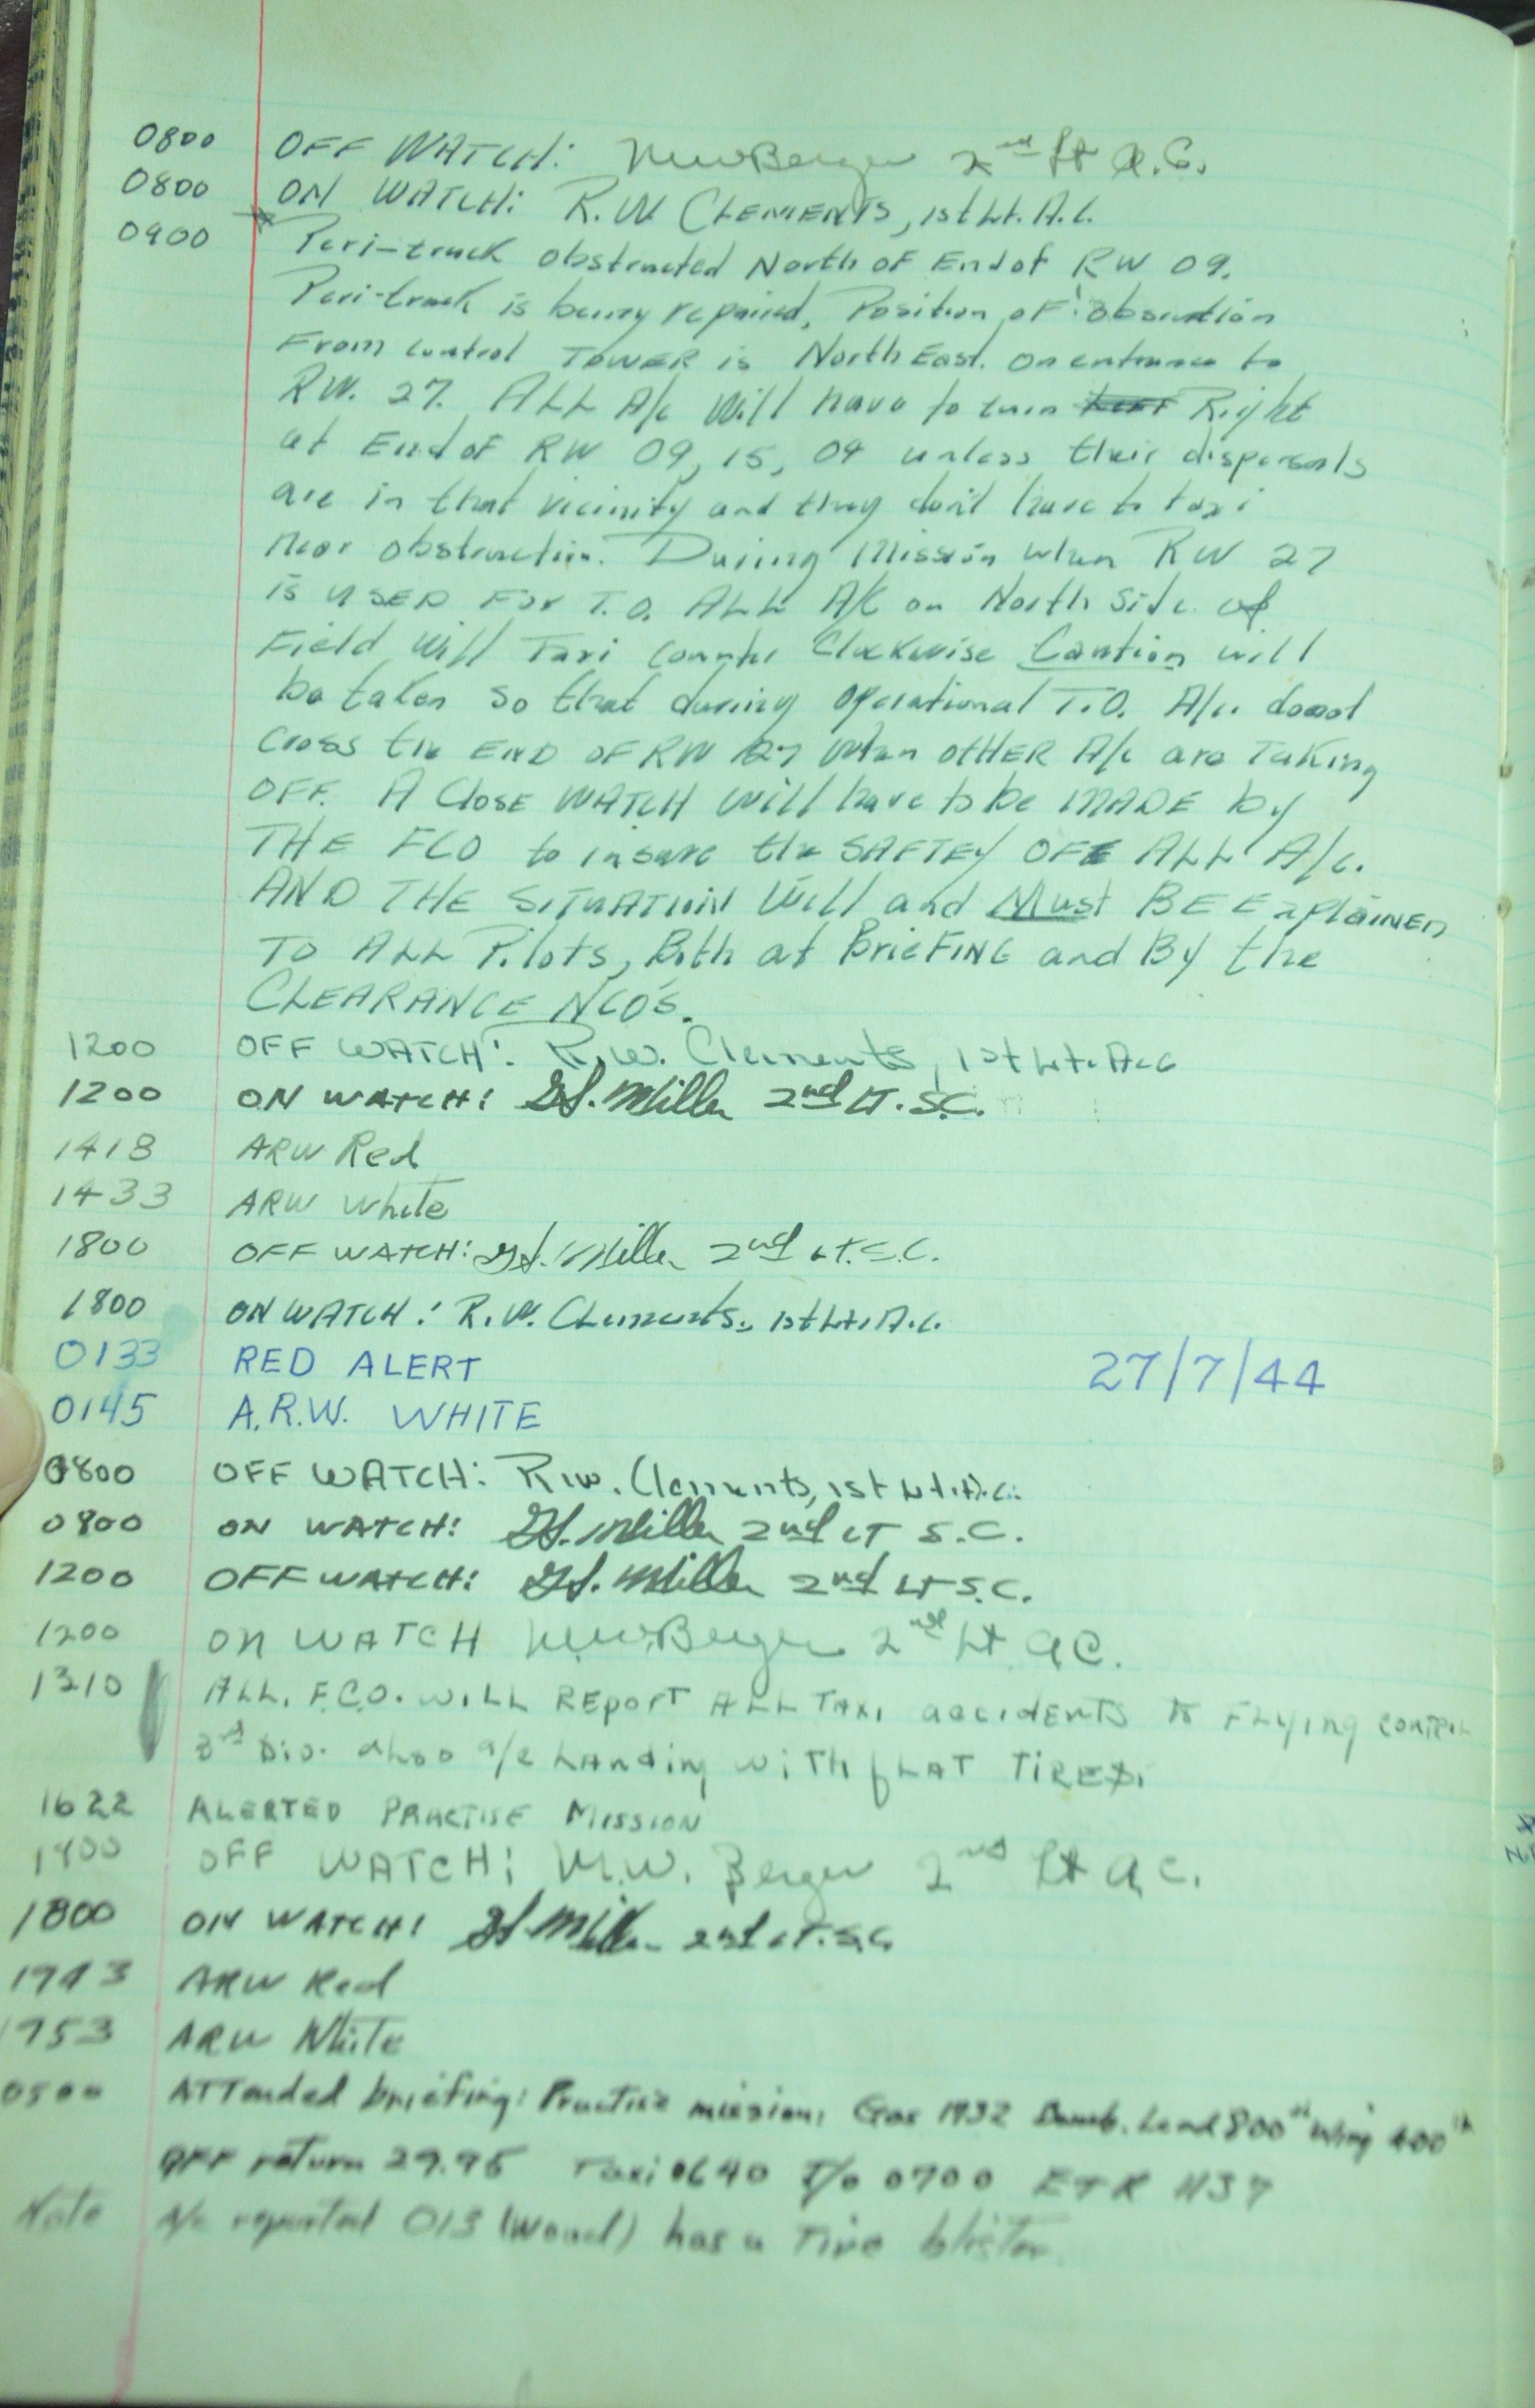 0800 OFF WATCH: MWBerger 2nd Lt A.C.
0800 ON WATCH: R.W. CLEMENTS, 1st Lt. A.C.
0900 Peri-track obstructed North of End of RW 09.
Peri-track is being repaired, Position of obsruction
From control TOWER is North East. on entrance to
RW. 27. ALL A/c will have to turn Right
at End of RW 09, 15, 04 unless their dispersals
are in that vicinity and they don't have to taxi
near obstruction. During Mission when RW 27
is USED For T.O. ALL A/C on North Side of
Field will Taxi Counter Clockwise Caution will
be taken so that during operational T.O. A/c. do not
Cross the END OF RW 27 when OTHER A/c are Taking
OFF. A Close WATCH will have to be MADE by
THE FCO to insure the SAFTEY OF ALL A/c.
AND THE SITUATION Will and Must BE Explained
TO ALL Pilots, Both at BrieFING and By the
CLEARANCE NCO'S.
1200 OFF WATCH: R.W. Clements, 1st Lt. A.C
1200 ON WATCH: Miller 2nd LT. S.C.
1418 ARW Red
1433 ARW White
1800 OFF WATCH: Miller 2nd LT. S.C.
1800 ON WATCH: R.W. Clements. 1st Lt. A.C.
0133 RED ALERT 27/7/44
0145 A.R.W. WHITE
0800 OFF WATCH: R.W. Clements, 1st Lt. A.C.
0800 ON WATCH: Miller 2nd LT S.C.
1200 OFF WATCH: Miller 2nd LT S.C.
1200 ON WATCH M.W.Berger 2nd Lt AC.
1310 ALL. F.C.O. WILL REPORT ALL TAXI accidENTS to FLYing CONTROL
3rd Div. also a/c LANding WITH fLAT TIRES.
1622 ALERTED PRACTISE MISSION
1800 OFF WATCH: M.W. Berger 2nd Lt A.C.
1800 ON WATCH: Miller 2nd LT. S.C.
1943 ARW Red
1953 ARW White
0500 ATTended briefing: Practice mission, Gas 1932 Lead 800 Wing 400
QFF return 29.95 Taxi 0640 T/o 0700 ETR 1137
Note A/c reported 013 (Wound) has a Tire blister.